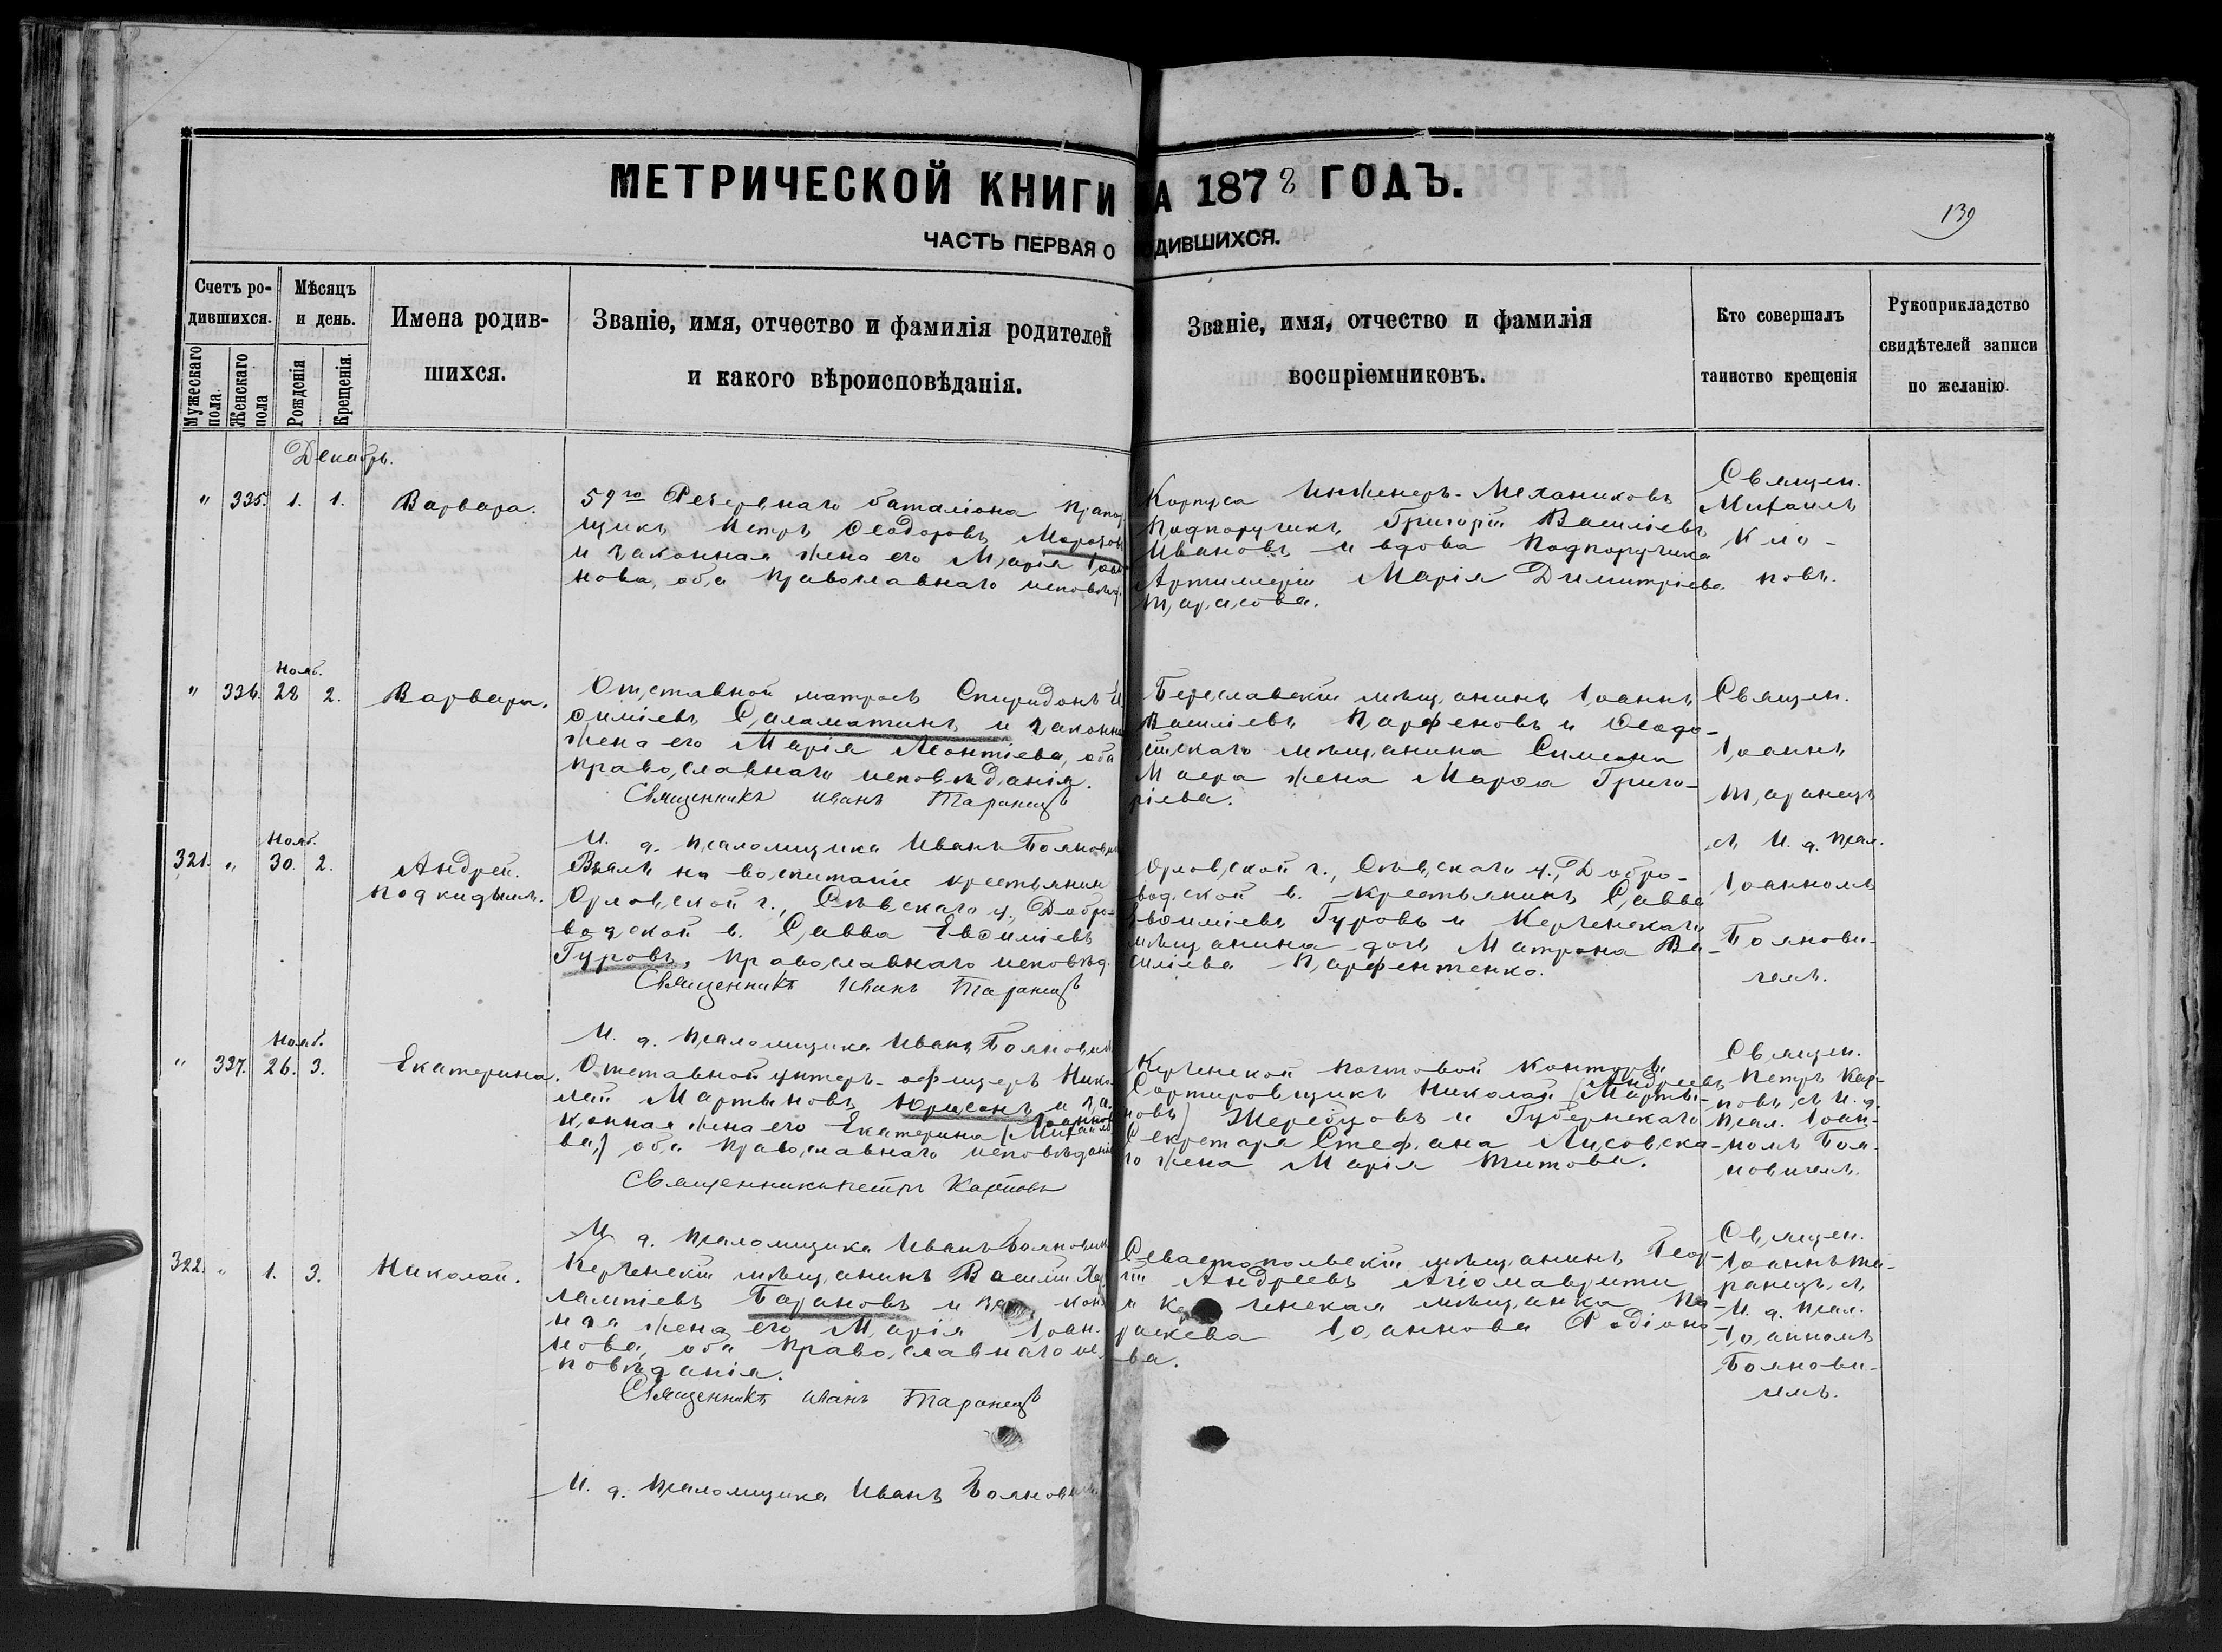 МЕТРИЧЕСКОЙ КНИГИ А 1878 ГОДЪ.
139
ЧАСТЬ ПЕРВАЯ О ДИВШИХСЯ.
Счетъ ро-
дившихся.
Мужескаго пола.
Женскаго пола
Мѣсяцъ
и день.
Рожденія
Крещенія.
Имена родив-
шихся.
Званіе, имя, отчество и фамилія родителей
и какого вѣроисповѣданія.
Званіе, имя, отчество и фамилія
воспріемниковъ.
Кто совершалъ
таинство крещенія
Рукоприкладство
свидѣтелей записи
по желанію.
Декабрь.
" 335. 1. 1.
Варвара.
59го Резервнаго баталіона Прапор
щикъ Петръ Ѳеодоровъ Морозовъ
и законная жена его Марія Іоан
нова, оба православнаго исповѣд.
Корпуса Инженеръ-Механиковъ
Подпоручикъ Григорій Василіевъ
Ивановъ и вдова Подпоручика
Артиллеріи Марія Димитріева
Тарасова.
Священ.
Михаилъ
Кло-
повъ.
Нояб.
" 336. 28 2.
Варвара.
Отставной матросъ Спиридонъ
ѳиміевъ Саламатинъ и законна
жена его Марія Леонтіева, оба
православнаго исповѣданія.
Священникъ Иванъ Таранецъ
И. д. псаломщика Иванъ Боянович
Береславскій мѣщанинъ Іоаннъ
Василіевъ Парфеновъ и Ѳеодо-
сійскаго мѣщанина Симеона
жена Марѳа Григо-
ріева.
Священ.
Іоаннъ
Таранецъ
съ И. д. псал.
Іоанномъ
Боянови-
чемъ.
Нояб.
321. " 30. 2.
Андрей.
подкидышъ.
Взялъ на воспитаніе крестьянин
Орловской г., Сѣвскаго у., Добро-
водской в. Савва Евѳиміевъ
Гуровъ, православнаго исповѣд.
Священникъ Иванъ Таранецъ
И. д. псаломщика Иванъ Боянович
Орловской г., Сѣвскаго у., Добро-
водской в. крестьянинъ Савва
Евѳиміевъ Гуровъ и Керченскаго
мѣщанина дочь Матрона Ва-
силіева Парфентенко.
Нояб.
" 337. 26. 3.
Екатерина.
Отставной унтеръ-офицеръ Нико-
лай Мартыновъ Юрисонъ и за-
конная жена его Екатерина (Михайло
Іоанно
ва,) оба православнаго исповѣдані
Священникъ Петръ Карповъ
И. д. псаломщика Иванъ Боянович
Керченской почтовой конторы
Андреевъ
Сортировщикъ Николай (Марты-
новъ) Жеребцовъ и Губернскаго
Секретаря Стефана Лисовска-
го жена Марія Титова.
Священ.
Петръ Кар-
повъ, съ И. д.
псал. Іоан-
номъ Боя-
новичемъ.
322. " 1. 3.
Николай.
Керченскій мѣщанинъ Василій Ха
лампіевъ Барановъ и кон-
ная жена его Марія Іоан-
нова, оба православнаго ис-
повѣданія.
Священникъ Иванъ Таранецъ
И. д. псаломщика Иванъ Боянович
Севастопольскій мѣщанинъ Геор-
гій Андреевъ Агіомаврити
и Ке ченская мѣщанка Па-
раскева Іоаннова Родіоно-
ва.
Священ.
Іоаннъ Та-
ранецъ, съ
И. д. псал.
Іоанномъ
Боянови-
чемъ.